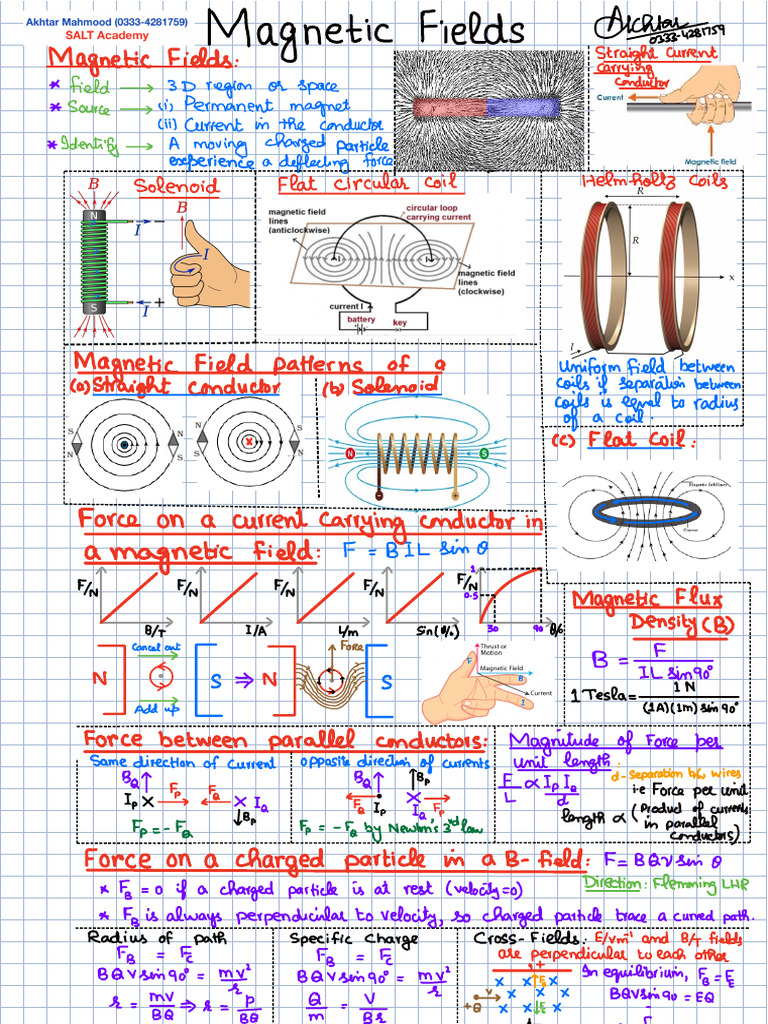 Akhtar Mahmood (0333-4281759)
SALT Academy
Magnetic Fields
Akhtar
0333-4281759
Magnetic Fields:
* Field → 3D region or space
* Source → (i) Permanent magnet
(ii) Current in the conductor
* Identify → A moving charged particle
experience a deflecting force
Straight Current
carrying
conductor
Current
Magnetic field
Solenoid
B
N
I
S
I
B
I
Flat circular coil
magnetic field
lines
(anticlockwise)
circular loop
carrying current
I
I
magnetic field
lines
(clockwise)
current I
battery
key
Helm-holtz coils
R
R
x
I
Uniform field between
coils if separation between
coils is equal to radius
of a coil.
Magnetic Field patterns of a
(a) Straight conductor
(b) Solenoid
S
N
N
S
S
N
N
S
N
S
(c) Flat Coil:
Magnetic field lines
Current
Force on a current carrying conductor in
a magnetic field: F = BIL sin θ
F/N
B/T
F/N
I/A
F/N
L/m
F/N
Sin(θ/o)
F/N
1
0.5
30
90
θ/o
N
Cancel out
Add up
S
⇒
N
Force
S
Thrust or
Motion
F
Magnetic Field
B
Current
I
Magnetic Flux
Density (B)
B = F / IL sin 90°
1 Tesla = 1 N / (1A)(1m) sin 90°
Force between parallel conductors:
Same direction of current
B_Q
I_P
F_P
F_Q
I_Q
B_P
F_P = - F_Q
Opposite direction of currents
B_Q
B_P
F_Q
I_P
I_Q
F_P
F_P = - F_Q by Newton's 3rd law
Magnitude of Force per
unit length:
d - Separation b/w wires
F/L ∝ I_P I_Q / d
i.e Force per unit
length ∝ (Product of currents
in parallel
conductors)
Force on a charged particle in a B-field: F = BQv sin θ
Direction: Flemming LHR
* F_B = 0 if a charged particle is at rest (velocity=0)
* F_B is always perpendicular to velocity, so charged particle trace a curved path.
Radius of path
F_B = F_C
BQv sin 90° = mv²/r
r = mv/BQ ⇒ r = p/BQ
Specific Charge
F_B = F_C
BQv sin 90° = mv²/r
Q/m = v/Br
Cross-Fields: E/Vm⁻¹ and B/T fields
are perpendicular to each other
+ +
+Q
v
E
E
In equilibrium, F_B = F_E
BQv sin 90 = EQ